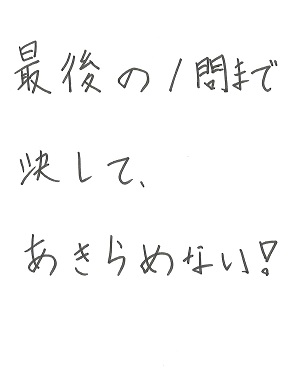 最後の1問まで
決して、
あきらめない!